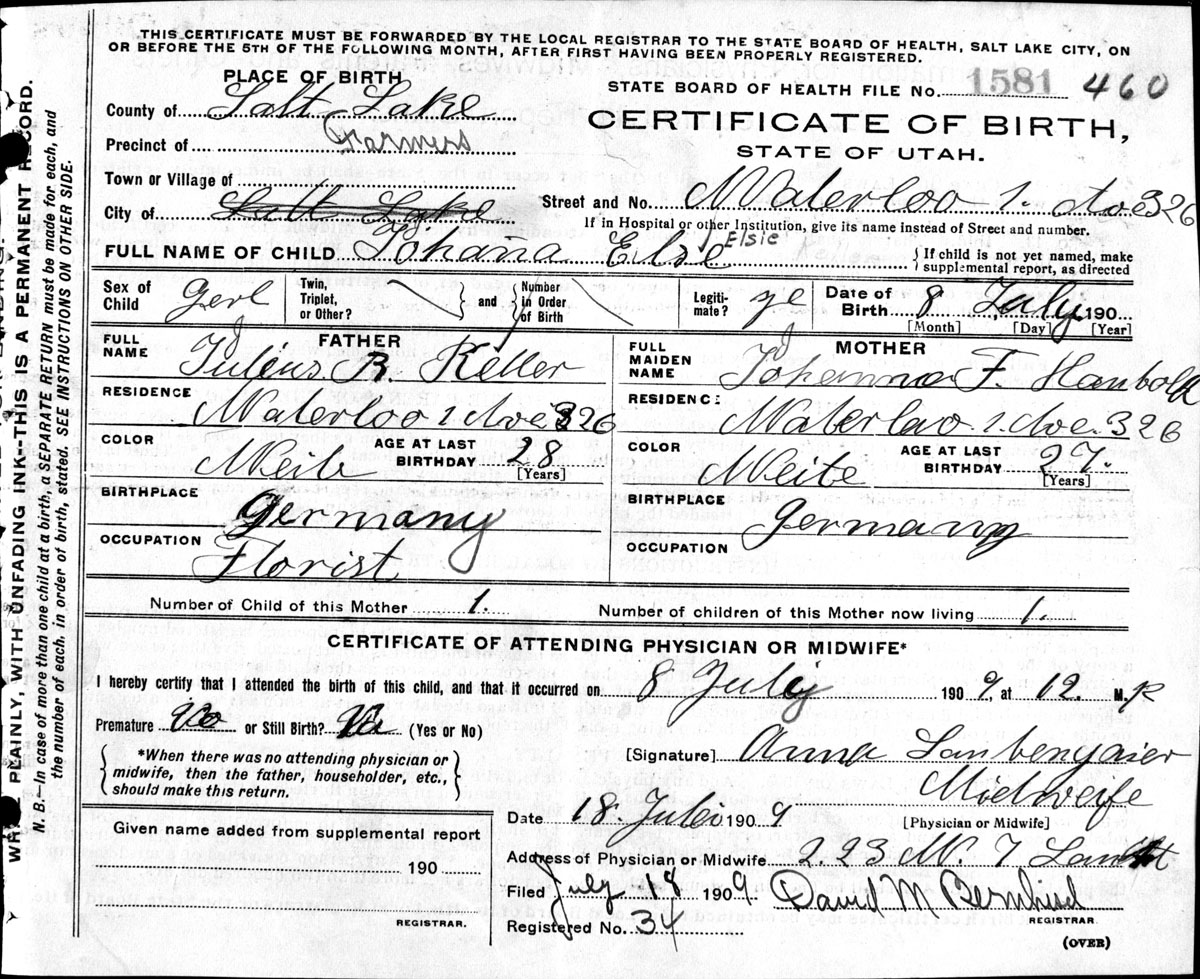 THIS CERTIFICATE MUST BE FORWARDED BY THE LOCAL REGISTRAR TO THE STATE BOARD OF HEALTH, SALT LAKE CITY, ON
OR BEFORE THE 5TH OF THE FOLLOWING MONTH, AFTER FIRST HAVING BEEN PROPERLY REGISTERED.
PLACE OF BIRTH
STATE BOARD OF HEALTH FILE NO. 1581 460
County of Salt Lake
CERTIFICATE OF BIRTH,
Precinct of Farmers
STATE OF UTAH.
Town or Village of
City of Salt Lake
Street and No. Waterloo 1. Ave 326
If in Hospital or other Institution, give its name instead of Street and number.
FULL NAME OF CHILD Johana Else Elsie
If child is not yet named, make
supplemental report, as directed
Sex of Child Gerl
Twin, Triplet, or Other?
and
Number in Order of Birth
Legitimate? ye
Date of Birth 8 July 190
[Month] [Day] [Year]
FATHER
FULL NAME Julius R. Keller
RESIDENCE Waterloo 1. Ave 326
COLOR
AGE AT LAST BIRTHDAY 28
[Years]
BIRTHPLACE Germany
OCCUPATION Florist
MOTHER
FULL MAIDEN NAME Johanna F. Haubold
RESIDENCE Waterloo 1. Ave. 326
COLOR Weite
AGE AT LAST BIRTHDAY 27.
[Years]
BIRTHPLACE Germany
OCCUPATION
Number of Child of this Mother 1.
Number of children of this Mother now living 1.
CERTIFICATE OF ATTENDING PHYSICIAN OR MIDWIFE*
I hereby certify that I attended the birth of this child, and that it occurred on 8 July 1909, at 12. M. p
Premature No or Still Birth? No (Yes or No)
*When there was no attending physician or
midwife, then the father, householder, etc.,
should make this return.
[Signature] Anna Laubengaier
Midweife
[Physician or Midwife]
Date 18. Juli 1909
Address of Physician or Midwife 223 W. 7
Given name added from supplemental report
190
REGISTRAR.
Filed July 19 1909 David M Bernhisel
REGISTRAR.
Registered No. 34
(OVER)
PLAINLY, WITH UNFADING INK—THIS IS A PERMANENT RECORD.
N. B.—In case of more than one child at a birth, a SEPARATE RETURN must be made for each, and
the number of each, in order of birth, stated. SEE INSTRUCTIONS ON OTHER SIDE.